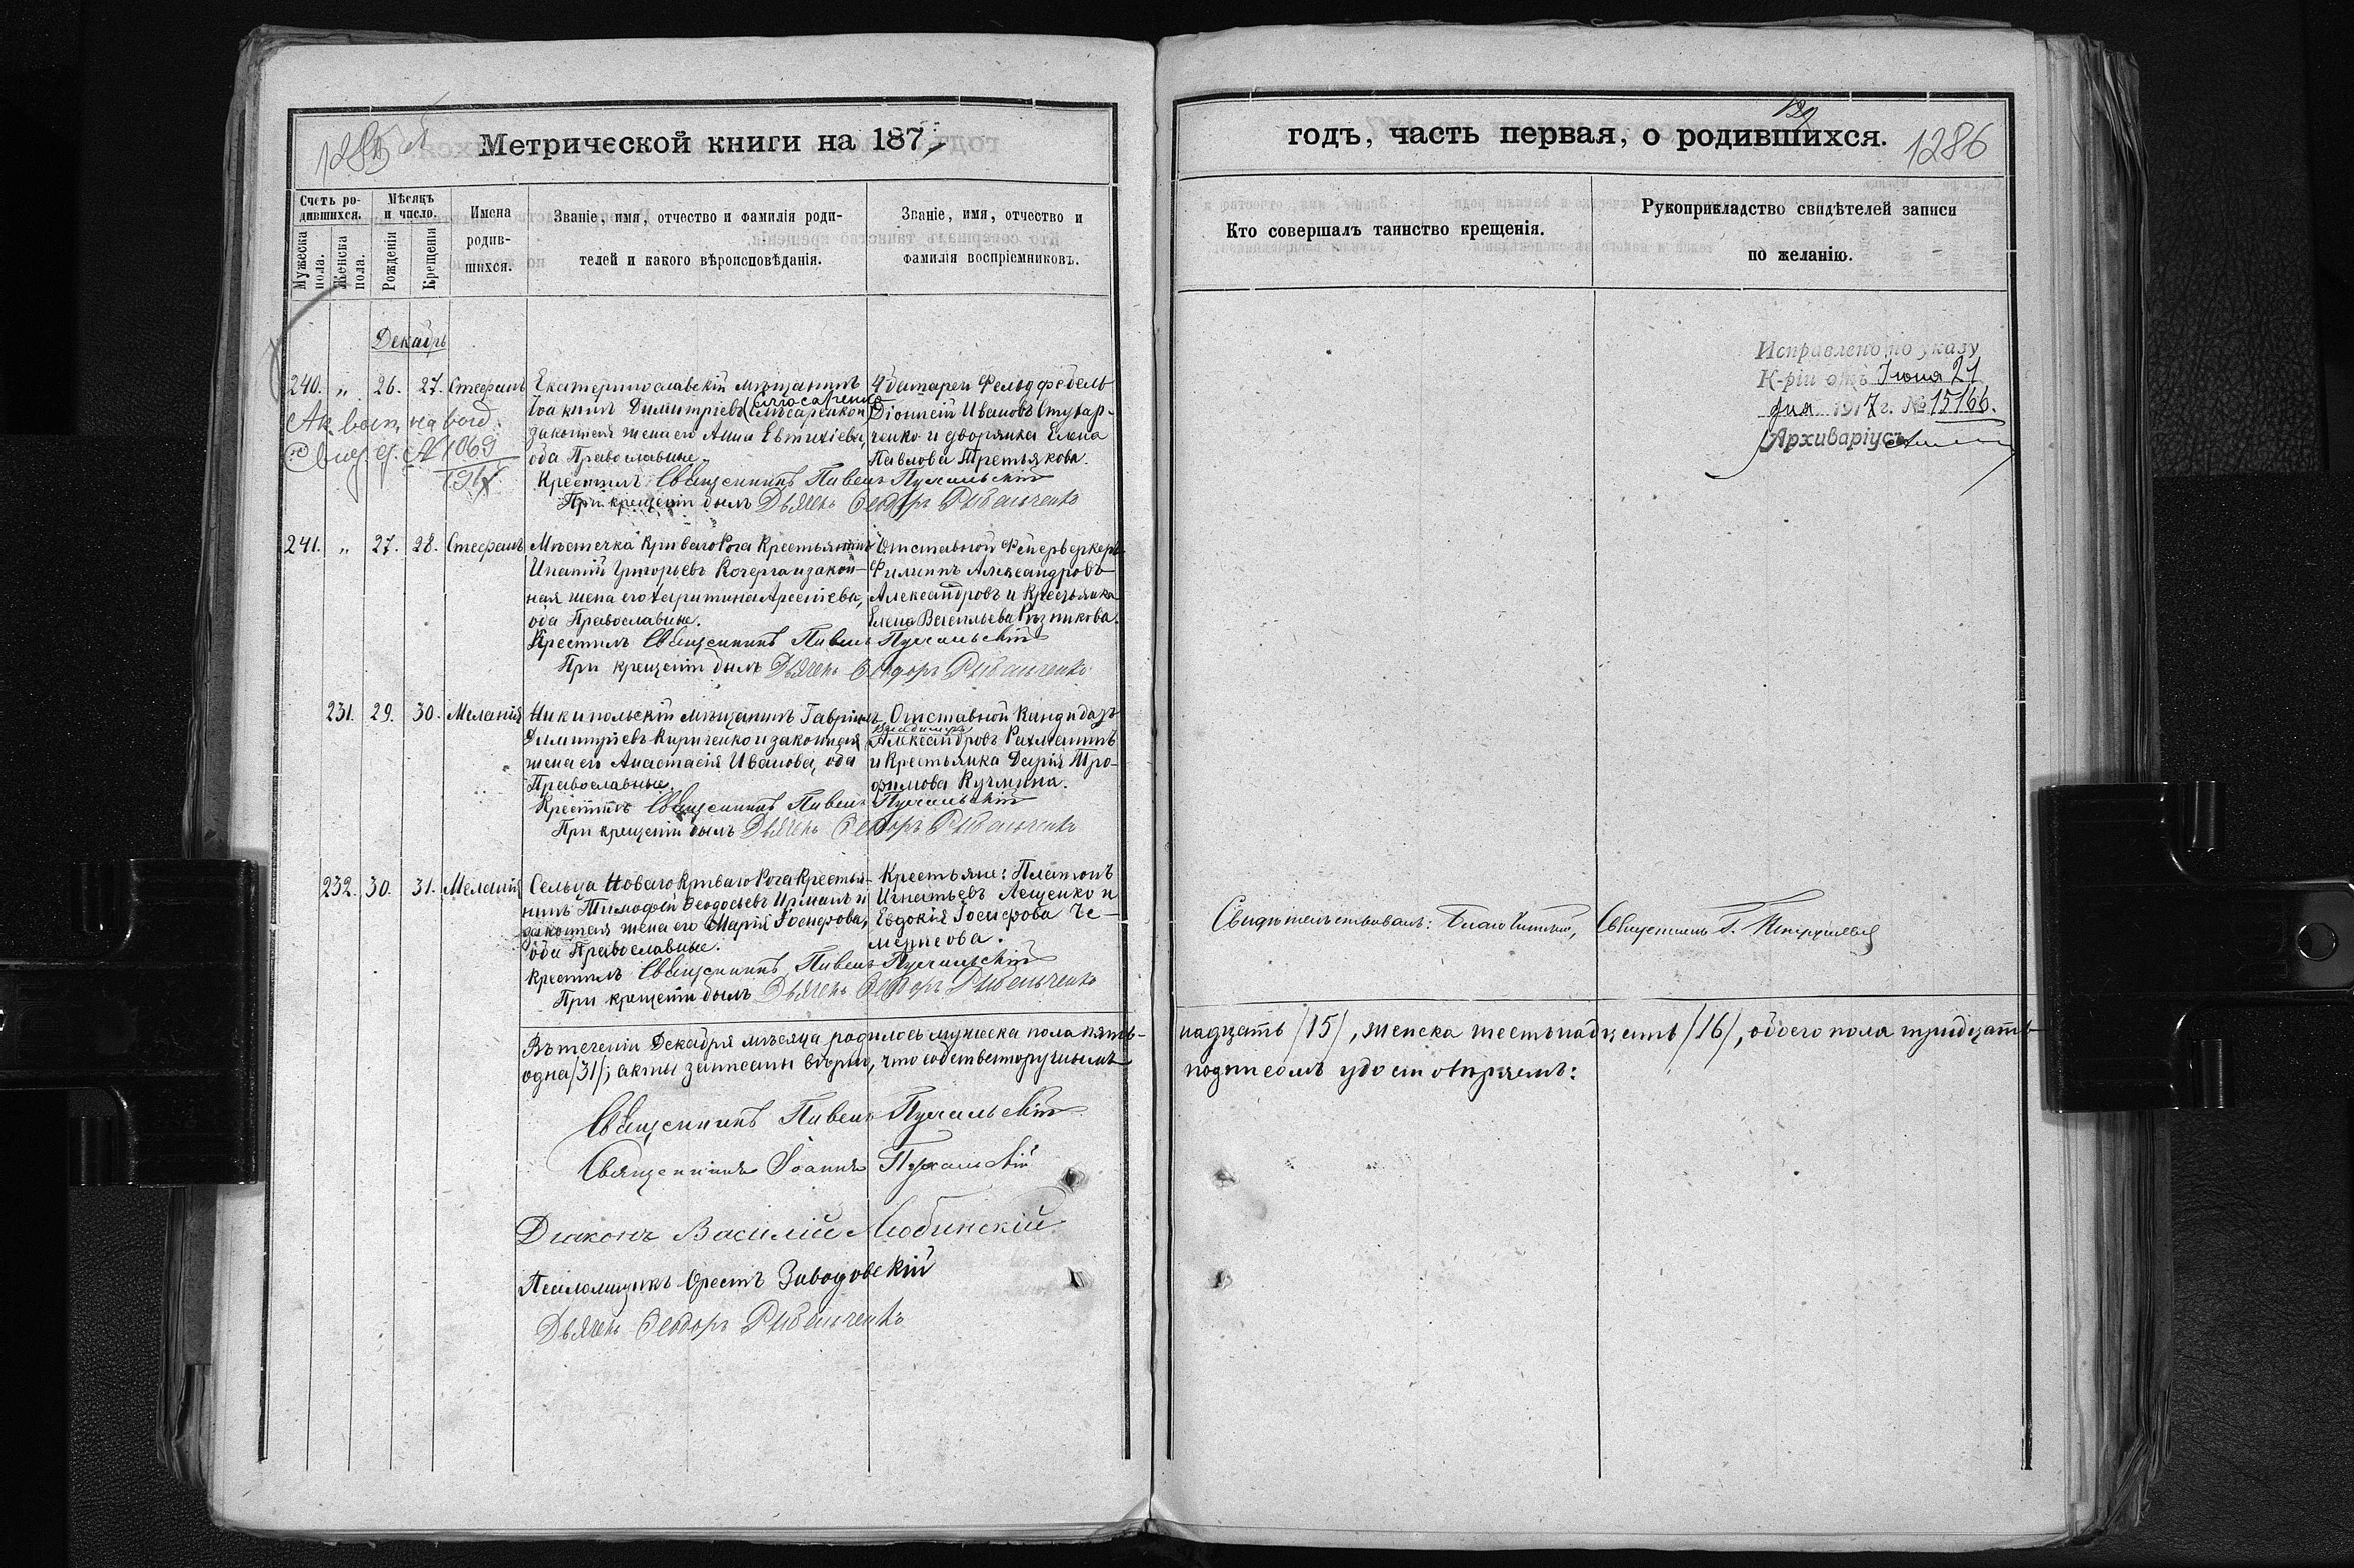 1285
Метрической книги на 187
Счетъ родившихся.
Мужеска пола.
Женска пола.
Мѣсяцъ и число.
Рожденія
Крещенія
Имена родившихся.
Званіе, имя, отчество и фамилія роди-
телей и какого вѣроисповѣданія.
Званіе, имя, отчество и
фамилія воспріемниковъ.
Декабрь
240. „ 26. 27. Стефанъ
Екатеринославскій мѣщанинъ
Іоакимъ Димитріевъ
законная жена его Анна Евтихіева,
оба Православные.
4 батареи Фельдфебель
Діонисій Ивановъ Стукар-
ченко и дворянка Елена
Павлова Третьякова.
Крестилъ Священникъ Павелъ Пухальскій
При крещеніи былъ Дьячекъ Ѳеодоръ Рыбальченко
Свид. № 1069
1917
241. „ 27. 28. Стефанъ
Мѣстечка Криваго Рога Крестьянинъ
Игнатій Григорьевъ Кочерга и закон-
ная жена его Харитина Арсеніева,
оба Православные.
Отставной Фейерверкеръ
Филиппъ Александровъ
Александровъ и Крестьянка
Елена Васильева Рѣзникова.
Крестилъ Священникъ Павелъ Пухальскій
При крещеніи былъ Дьячекъ Ѳеодоръ Рыбальченко
231. 29. 30. Меланія
Никипольскій мѣщанинъ Гавріилъ
Димитріевъ Кириченко и законная
жена его Анастасія Иванова, оба
Православные.
Отставной Кандидатъ
Владимиръ
Александровъ Рахманинъ
и Крестьянка Дарія Тро-
фимова Кузмина.
Крестилъ Священникъ Павелъ Пухальскій
При крещеніи былъ Дьячекъ Ѳеодоръ Рыбальченко
232. 30. 31. Меланія
Сельца Новаго Криваго Рога Крестья-
нинъ Тимофей Ѳеодосьевъ Ирманъ и
законная жена его Марія Іосифова,
оба Православные.
Крестьяне: Платонъ
Игнатьевъ Лещенко и
Евдокія Іосифова Че-
менсова.
Крестилъ Священникъ Павелъ Пухальскій
При крещеніи былъ Дьячекъ Ѳеодоръ Рыбальченко
Въ теченіи Декабря мѣсяца родилось мужеска пола пять-
одна /31/; акты записаны вѣрно, что собственноручнымъ
Священникъ Павелъ Пухальскій
Священникъ Іоаннъ Пухальскій
Діаконъ Василій Любинскій
Псаломщикъ Орестъ Заводовскій
Дьячекъ Ѳеодоръ Рыбальченко
129
годъ, часть первая, о родившихся.
1286
Кто совершалъ таинство крещенія.
Рукоприкладство свидѣтелей записи
по желанію.
Исправлено по указу
К-ріи отъ Іюня 21
дня 1917 г. № 15166.
Архиваріусъ
Свидѣтельствовалъ: Благочинный, Священникъ Г.
надцать /15/, женска шестьнадцать /16/, обоего пола тридцать
подписомъ удостовѣряемъ: